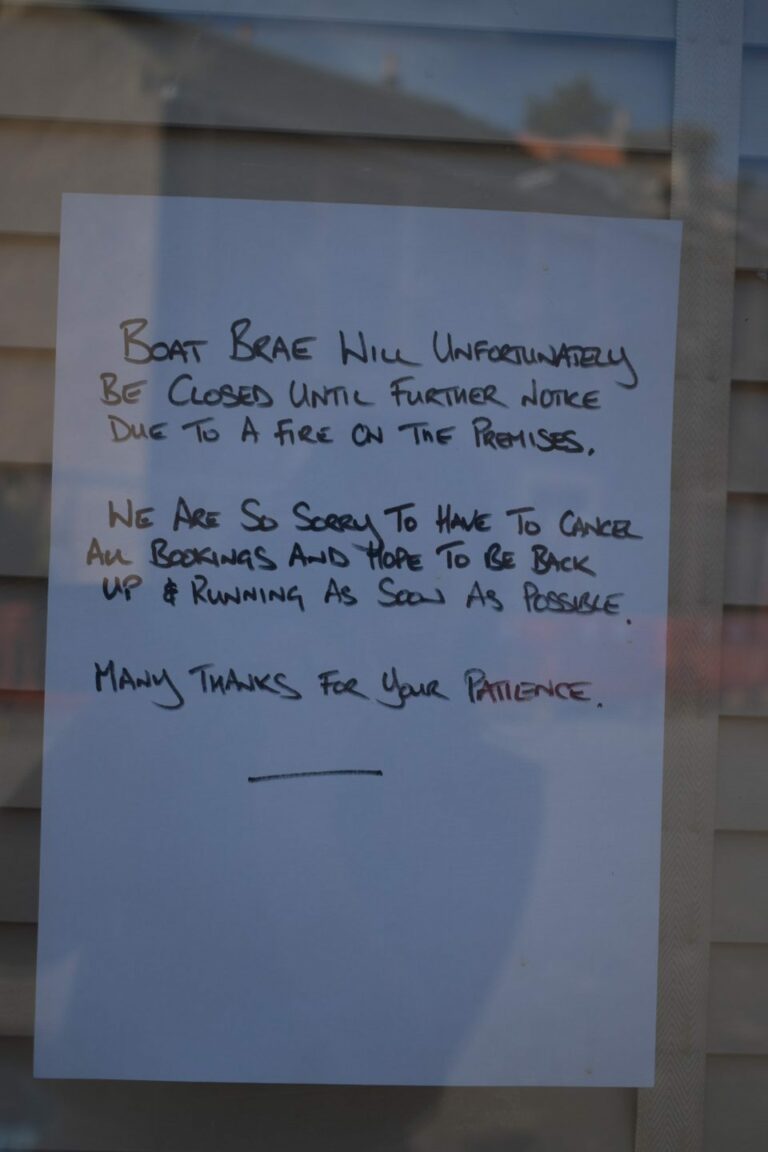 Boat Brae Will Unfortunately
Be Closed Until Further Notice
Due To A Fire On The Premises.
We Are So Sorry To Have To Cancel
All Bookings And Hope To Be Back
Up & Running As Soon As Possible.
Many Thanks For Your Patience.